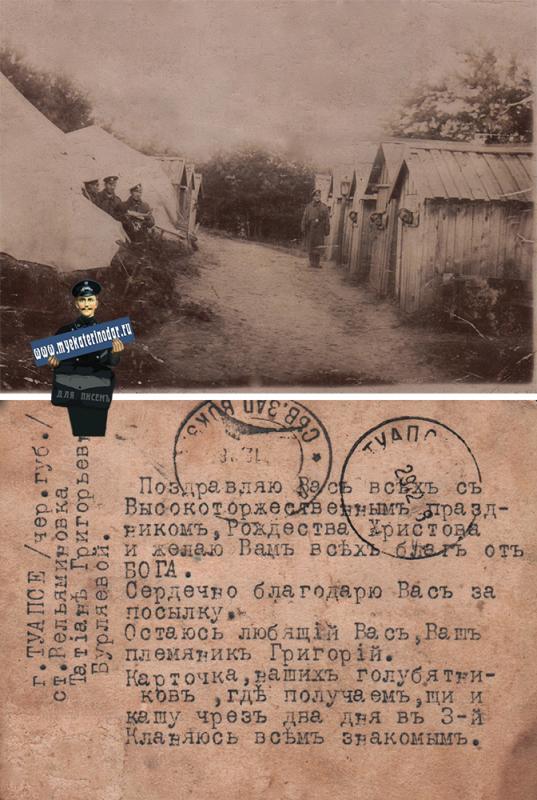 www.myekaterinodar.ru
ДЛЯ ПИСЕМЪ
г. ТУАПСЕ /чер.губ./
ст.Вельяминовка
Татіанѣ Григорьевн
Бурляевой.
СѢВ.ЗАП
ТУАПС
29 12
Поздравляю Васъ всѣхъ съ
Высокоторжественнымъ празд-
никомъ,Рождества Христова
и желаю Вамъ всѣхъ благъ отъ
БОГА.
Сердечно благодарю Васъ за
посылку.
Остаюсь любящій Васъ,Вашъ
племяникъ Григорій.
Карточка,нашихъ голубятни-
ковъ ,гдѣ получаемъ,щи и
кашу чрезъ два дня въ 3-й
Кланяюсь всѣмъ знакомымъ.